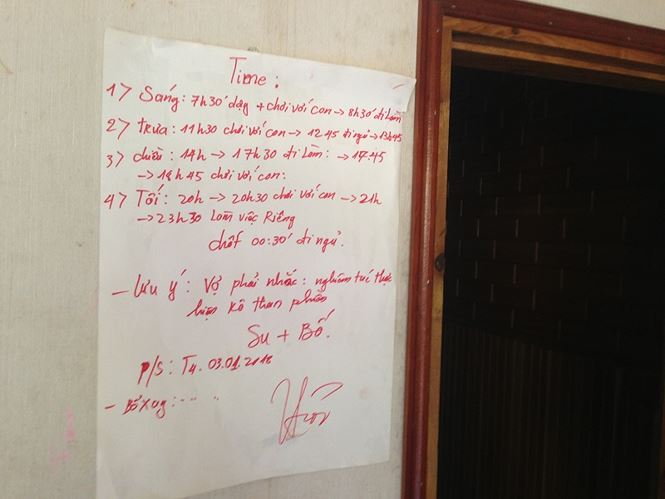 Time:
1) Sáng: 7h30' dạy + chơi với con → 8h30' đi làm
2) Trưa: 11h30 chơi với con → 12 45 đi ngủ → 13h45
3) chiều: 14h → 17h30 đi làm: → 17h45
→ 18h45 chơi với con:
4) Tối: 20h → 20h30 chơi với con → 21h
→ 23h30 Làm việc Riêng
chốt 00:30' đi ngủ.
- Lưu ý: Vợ phải nhắc: nghiêm túc thực
hiện ko than phiền
Su + Bố.
P/S: T4. 03.01.2018